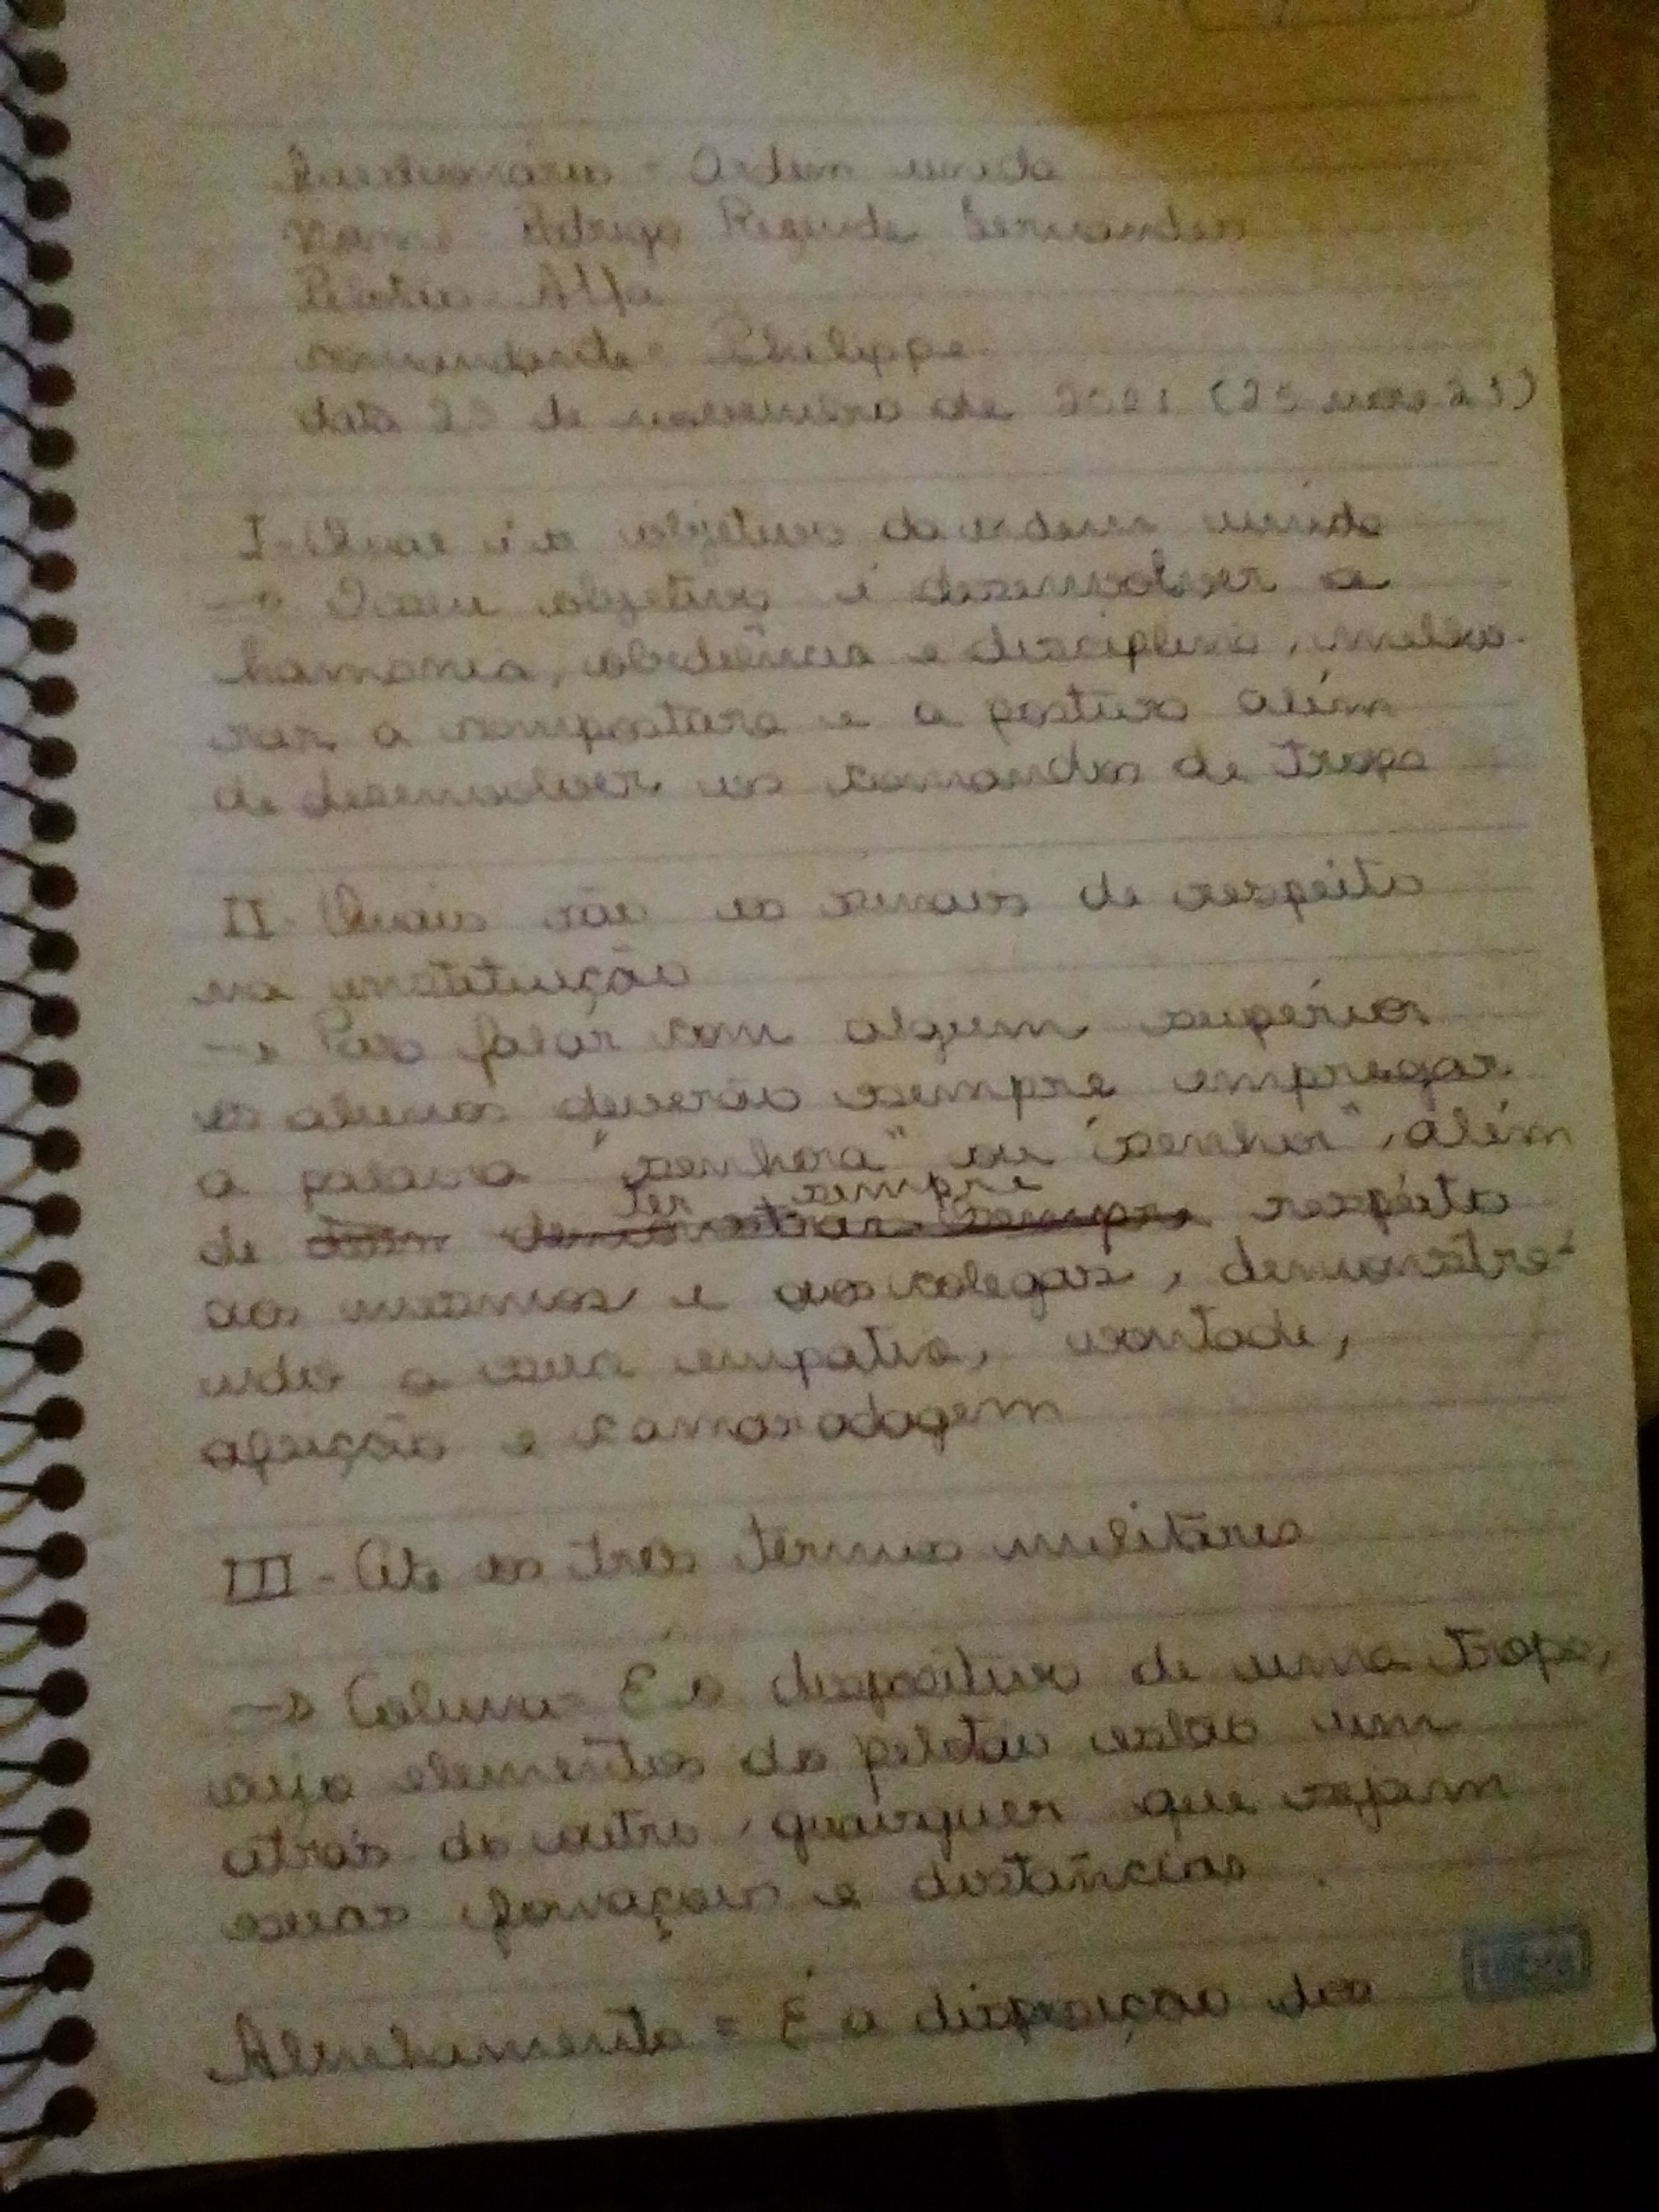 Questionário - Ordem unida
Nome - Rodrigo Rezende
Pelotão - Alfa
comandante = Philippe
data 23 de novembro de 2021 (23 nov 21)
I - Qual é o objetivo da ordem unida
→ O seu objetivo é desenvolver a
hamonia, obediência e disciplina, melho-
rar a compostura e a postura além
de desenvolver os comandos de tropa
II - Quais são os sinais de respeito
na instituição
→ Para falar com algum supérior
os alunos deverão sempre empregar
a palavra "senhora" ou "senhor", além
de ter sempre respeito
aos mesmos e aos colegas, demonstra-
ndo a sua empatia, vontade,
afeição e camaradagem
III - Cite os tres termos militares
→ Coluna = É o dispositivo de uma tropa,
cujo elementos do pelotão estão um
atrás do outro, quaisquer que sejam
suas formações e distâncias.
Alinhamento = É a disposição de